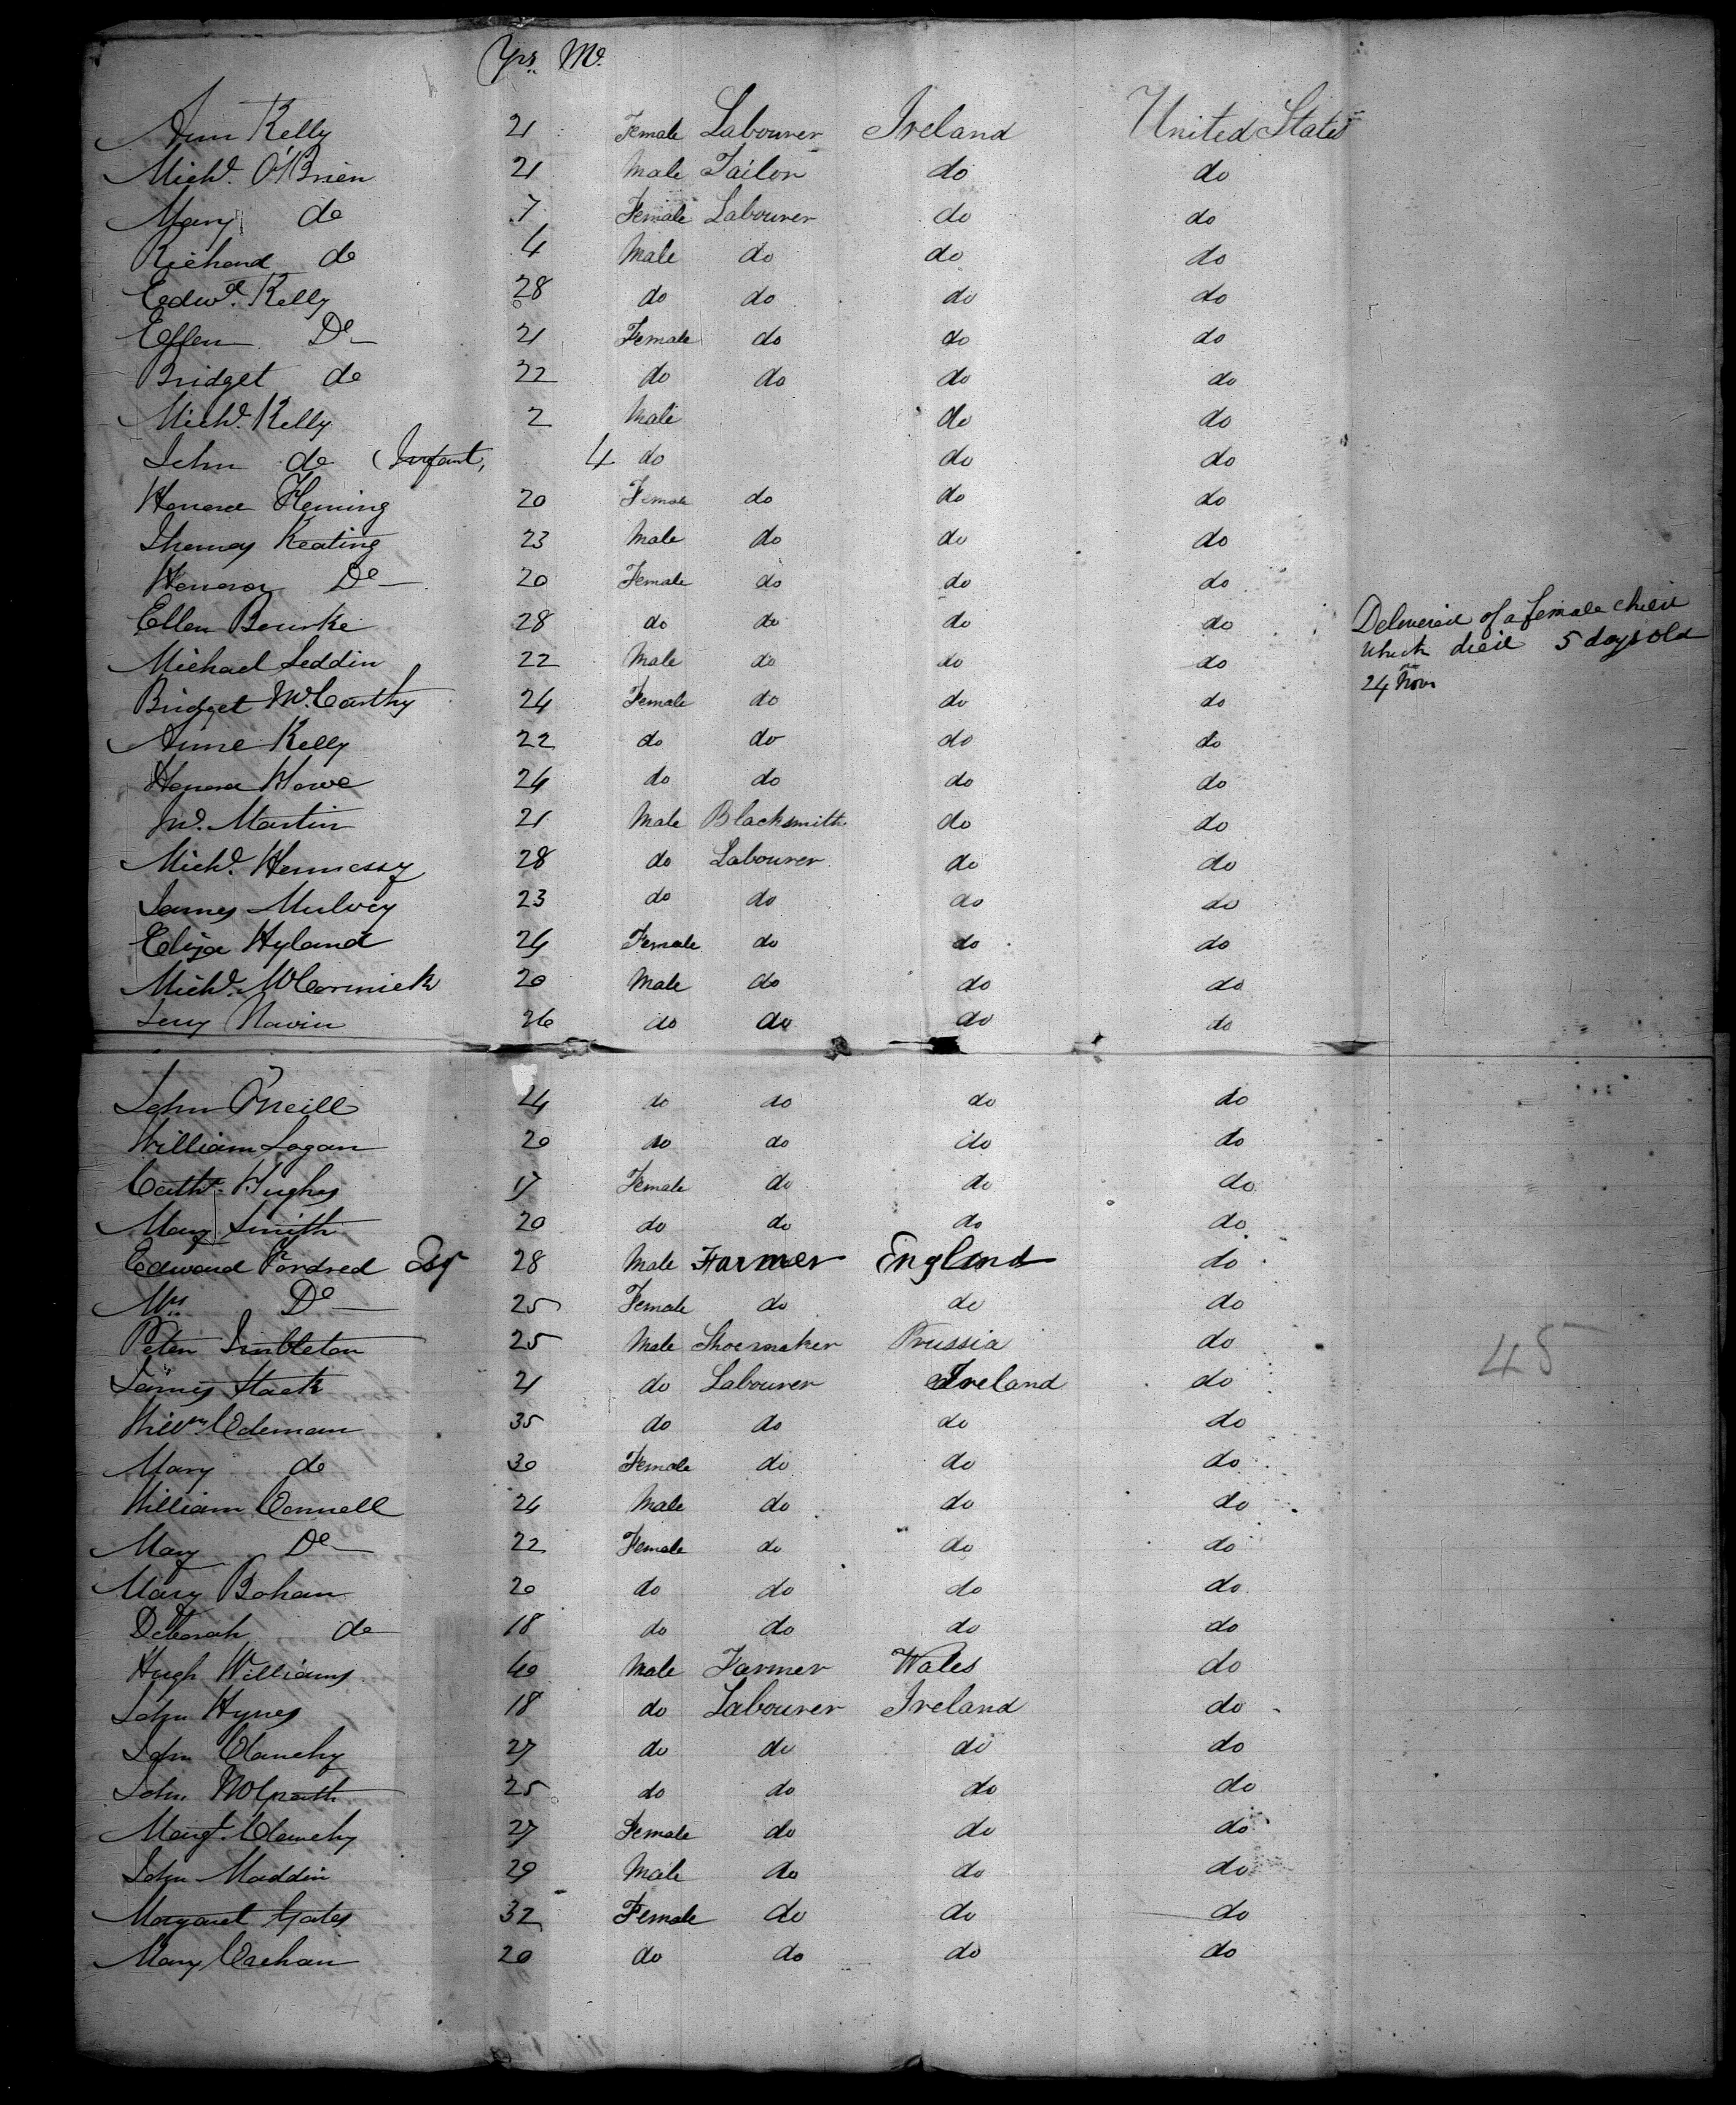 Yrs. Mo.
Ann Kelly 21 Female Labourer Ireland United States
Michl. O'Brien 21 Male Tailor do do
Mary do 7 Female Labourer do do
Richard do 4 Male do do do
Edwd. Kelly 28 do do do do
Ellen Do 21 Female do do do
Bridget do 22 do do do do
Michl. Kelly 2 Male do do
John do (Infant, 4 do do do
Honora Fleming 20 Female do do do
Thomas Keating 23 Male do do do
Honora Do 20 Female do do do
Ellen Bourke 28 do do do do Delivered of a female child
Michael Leddin 22 Male do do do which died 5 days old
Bridget McCarthy 24 Female do do do 24 Novr
Anne Kelly 22 do do do do
Honora Howe 24 do do do do
Jno. Martin 21 Male Blacksmith do do
Michl. Hennessy 28 do Labourer do do
James Mulvey 23 do do do do
Eliza Hyland 24 Female do do do
Michl. McCormick 20 Male do do do
Navin 26 do do do do
John O'Neill 24 do do do do
William Logan 20 do do do do
Cathe. Hughes 17 Female do do do
Mary Smith 20 do do do do
Edward Fordred Esq 28 Male Farmer England do
Mrs Do 25 Female do do do
Peter Simbleton 25 Male Shoemaker Prussia do
James Stack 21 do Labourer Ireland do
45
Willm Coleman 35 do do do do
Mary do 30 Female do do do
William Connell 24 Male do do do
Mary Do 22 Female do do do
Mary Bohan 20 do do do do
Deborah do 18 do do do do
Hugh Williams 40 Male Farmer Wales do
John Hynes 18 do Labourer Ireland do
John Clanchy 27 do do do do
John McGrath 25 do do do do
Margt. Clanchy 27 Female do do do
John Maddin 29 Male do do do
Margaret Yates 32 Female do do do
Mary Crehan 20 do do do do